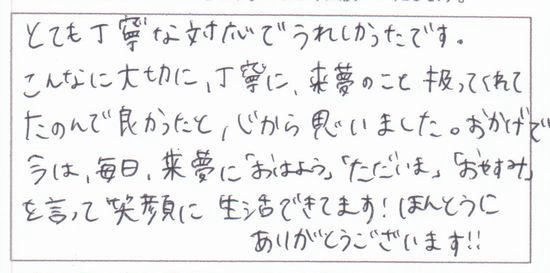 とても丁寧な対応でうれしかったです。
こんなに大切に、丁寧に、来夢のこと扱ってくれて
たのんで良かったと、心から思いました。おかげで
今は、毎日、来夢に「おはよう」「ただいま」「おやすみ」
を言って笑顔に生活できてます！ほんとうに
ありがとうございます!!